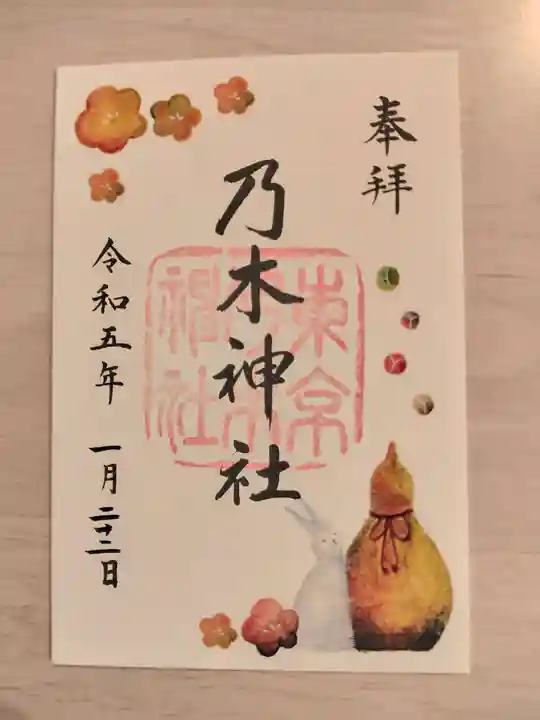 奉拝
乃木神社
東京乃木神社
令和五年 一月二十二日